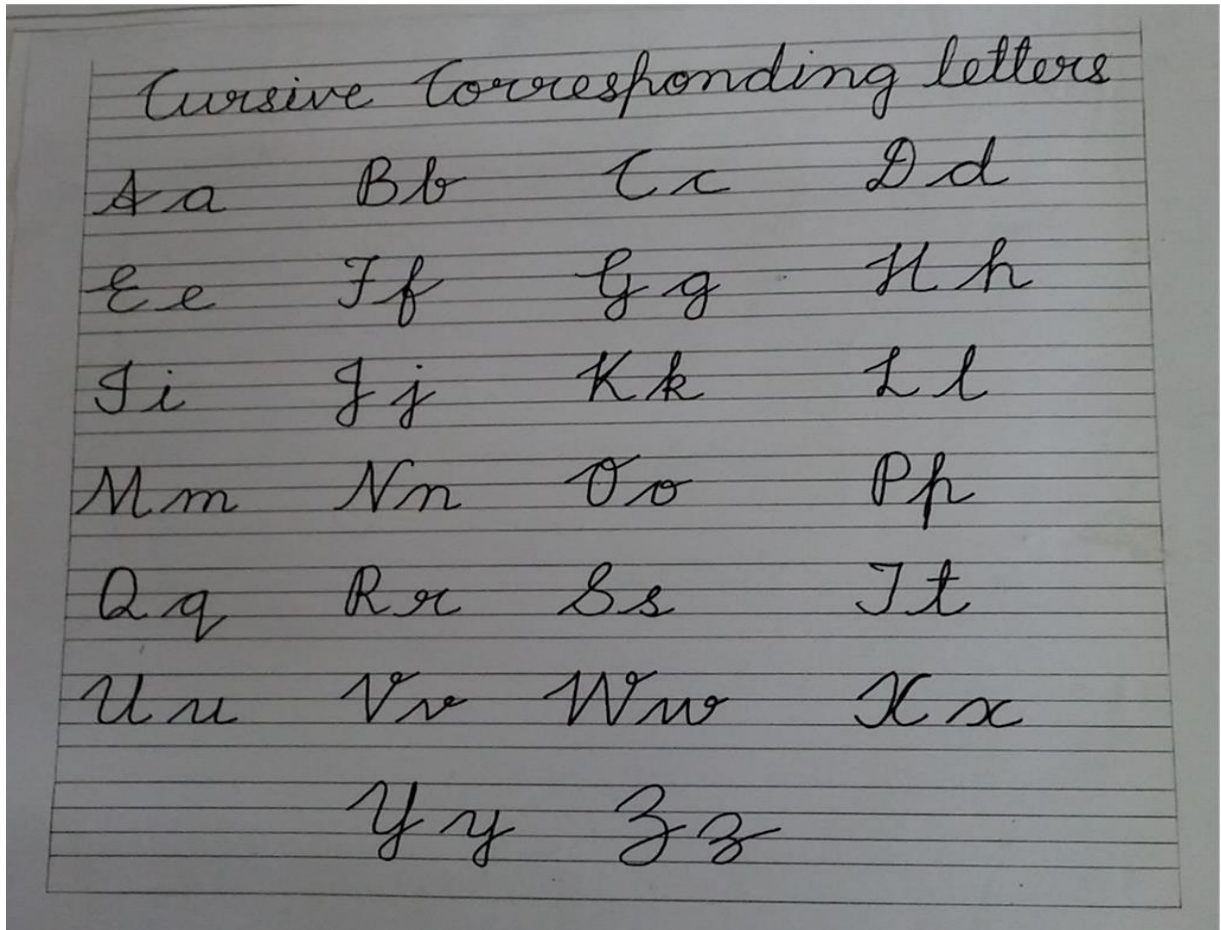 Cursive Corresponding letters
Aa Bb Cc Dd
Ee Ff Gg Hh
Ii Jj Kk Ll
Mm Nn Oo Pp
Qq Rr Ss Tt
Uu Vv Ww Xx
Yy Zz